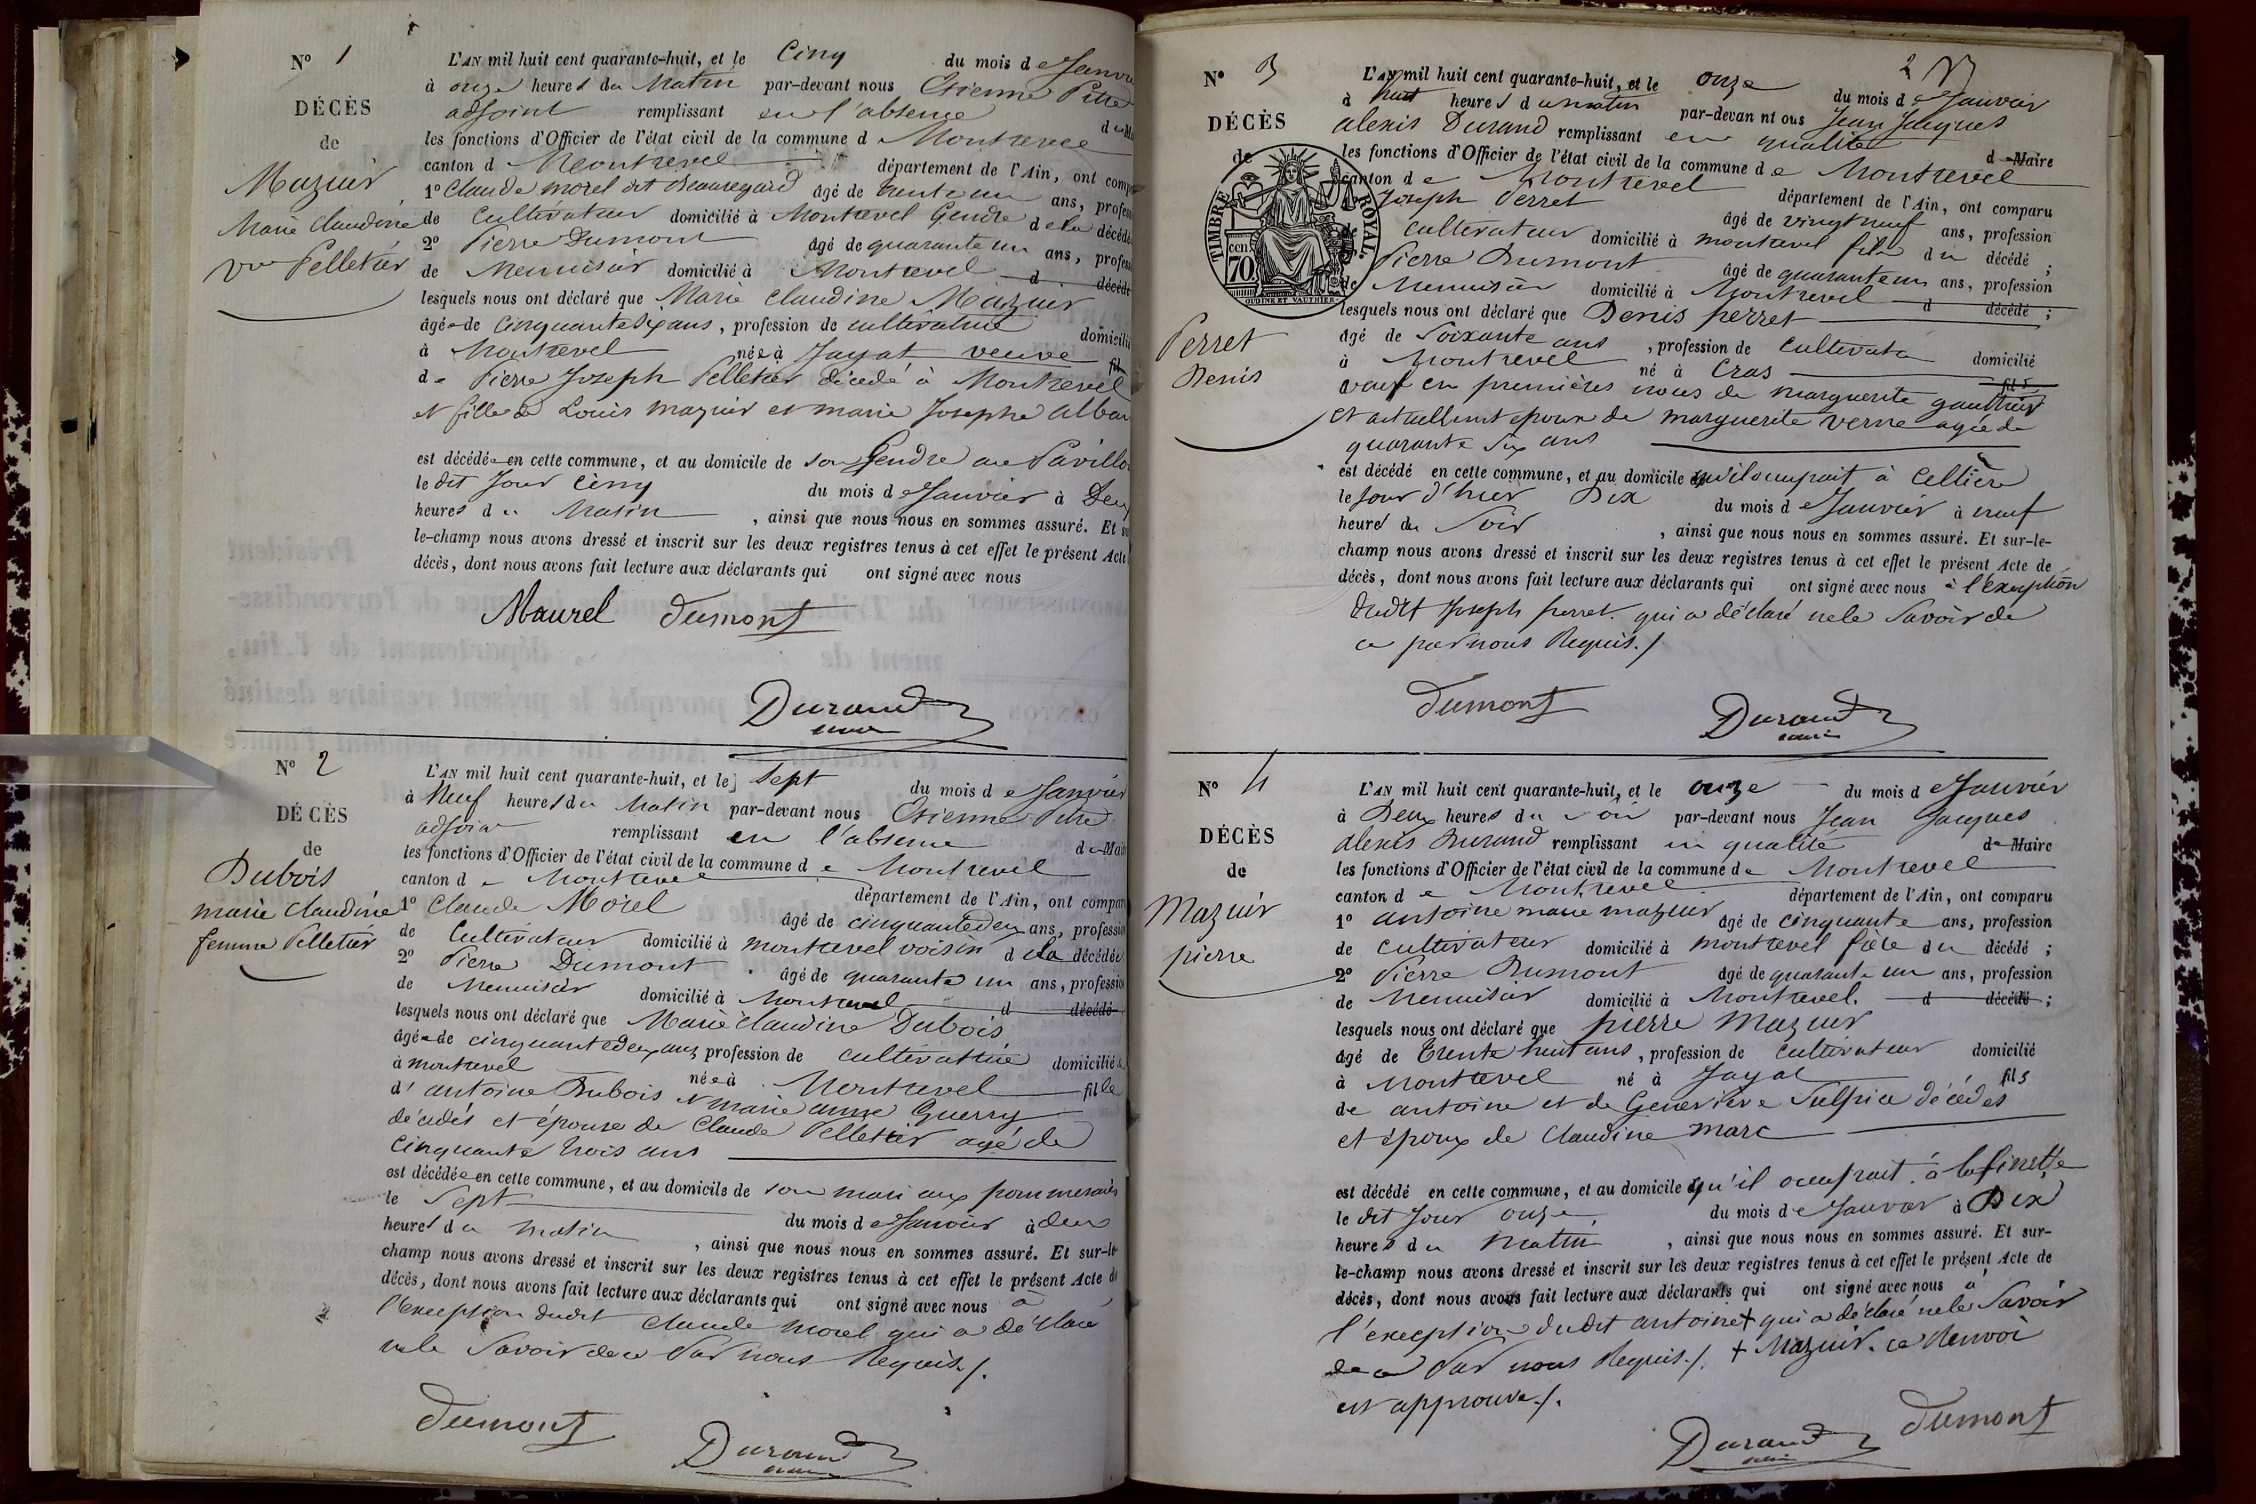 N° 1
DÉCÈS
de
Mazuir
Marie Claudine
Vve Pelletier
L'AN mil huit cent quarante-huit, et le Cinq du mois de Janvier
à onze heures du Matin par-devant nous Etienne Pitre
adjoint remplissant en l'absence du Ma
les fonctions d'Officier de l'état civil de la commune d Montrevel
canton d Montrevel département de l'Ain, ont comp
1° Claude morel dit Beauregard âgé de trente un ans, profess
de Cultivateur domicilié à Montrevel Gendre de la décédé
2° Pierre Dumont âgé de quarante un ans, profess
de Menuisier domicilié à Montrevel d décédé
lesquels nous ont déclaré que Marie Claudine Mazuir
âgée de cinquante six ans, profession de cultivatrice domicilié
à Montrevel née à Jayat veuve fil
de Pierre Joseph Pelletier décédé à Montrevel
et fille de Louis mazuir et marie Josephe alban
est décédée en cette commune, et au domicile de son Gendre au Pavillon
le dit Jour cinq du mois de Janvier à Deux
heures du Matin, ainsi que nous nous en sommes assuré. Et su
le-champ nous avons dressé et inscrit sur les deux registres tenus à cet effet le présent Acte
décès, dont nous avons fait lecture aux déclarants qui ont signé avec nous
Maurel Dumont
Durand
N° 2
DÉCÈS
de
Dubois
marie Claudine
femme Pelletier
L'AN mil huit cent quarante-huit, et le sept du mois de Janvier
à Neuf heures du Matin par-devant nous Etienne Pitre
adjoint remplissant en l'absence du Mair
les fonctions d'Officier de l'état civil de la commune de Montrevel
canton de Montrevel département de l'Ain, ont compar
1° Claude Morel âgé de cinquante deux ans, professio
de Cultivateur domicilié à montrevel voisin de la décédée
2° Pierre Dumont âgé de quarante un ans, professio
de Menuisier domicilié à Montrevel d décédé
lesquels nous ont déclaré que Marie Claudine Dubois
âgée de cinquante deux ans, profession de cultivatrice domicilié
à montrevel née à Montrevel fille
d'antoine Dubois et marie anne Guerry
décédés et épouse de Claude Pelletier agé de
cinquante trois ans
est décédée en cette commune, et au domicile de son mari aux pommeraies
le Sept du mois de Janvier à deux
heures du matin, ainsi que nous nous en sommes assuré. Et sur-le
champ nous avons dressé et inscrit sur les deux registres tenus à cet effet le présent Acte de
décès, dont nous avons fait lecture aux déclarants qui ont signé avec nous à
l'exception dudit Claude morel qui a déclaré
ne le Savoir de ce Par nous Requis./.
Dumont
Durand
N° 3
DÉCÈS
de
TIMBRE ROYAL.
70 cen
OUDINE ET VAUTHIER
Perret
Denis
2
L'AN mil huit cent quarante-huit, et le onze du mois de Janvier
à huit heures du matin par-devant nous Jean Jacques
alexis Durand remplissant en qualité de Maire
les fonctions d'Officier de l'état civil de la commune de Montrevel
canton de Montrevel département de l'Ain, ont comparu
Joseph Perret âgé de vingt neuf ans, profession
de cultivateur domicilié à montrevel fils du décédé ;
Pierre Dumont âgé de quarante un ans, profession
de Menuisier domicilié à Montrevel d décédé ;
lesquels nous ont déclaré que Denis perret
âgé de Soixante ans, profession de Cultivateur domicilié
à Montrevel né à Cras fils
veuf en premières noces de marguerite gauthier
et actuellement epoux de marguerite verne agée de
quarante six ans
est décédé en cette commune, et au domicile qu'il occupait à Cellière
le Jour d'hier Dix du mois de Janvier à neuf
heures du Soir, ainsi que nous nous en sommes assuré. Et sur-le-
champ nous avons dressé et inscrit sur les deux registres tenus à cet effet le présent Acte de
décès, dont nous avons fait lecture aux déclarants qui ont signé avec nous à l'exception
dudit Joseph perret qui a déclaré ne le Savoir de
ce par nous Requis./
Dumont
Durand
N° 4
DÉCÈS
de
Mazuir
pierre
L'AN mil huit cent quarante-huit, et le onze du mois de Janvier
à Deux heures du soir par-devant nous Jean Jacques
Alexis Durand remplissant en qualité de Maire
les fonctions d'Officier de l'état civil de la commune de Montrevel
canton de Montrevel département de l'Ain, ont comparu
1° antoine marie mazuir âgé de cinquante ans, profession
de cultivateur domicilié à montrevel frère du décédé ;
2° Pierre Dumont âgé de quarante un ans, profession
de Menuisier domicilié à Montrevel. d décédé ;
lesquels nous ont déclaré que pierre Mazuir
âgé de trente huit ans, profession de Cultivateur domicilié
à Montrevel né à Jayat fils
de antoine et de Genevieve Sulpice décédés
et époux de Claudine marc
est décédé en cette commune, et au domicile qu'il occupait à la finette
le dit Jour onze du mois de Janvier à Dix
heures du Matin, ainsi que nous nous en sommes assuré. Et sur-
le-champ nous avons dressé et inscrit sur les deux registres tenus à cet effet le présent Acte de
décès, dont nous avons fait lecture aux déclarants qui ont signé avec nous à
l'exception dudit antoine + qui a déclaré ne le Savoir
de ce Par nous Requis./. + Mazuir. ce Renvoi
est approuvé./.
Durand Dumont